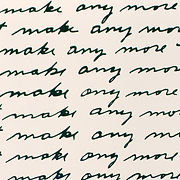 make any more
t make any mor
make any more
make any more
make any more
make any more
make any more
make any more
make any more